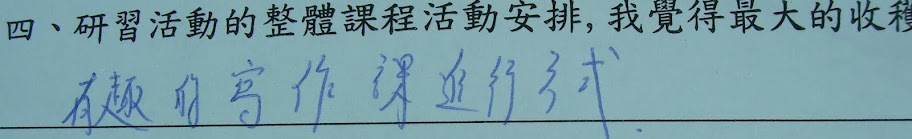 四、研習活動的整體課程活動安排,我覺得最大的收穫
有趣的寫作課進行方式.